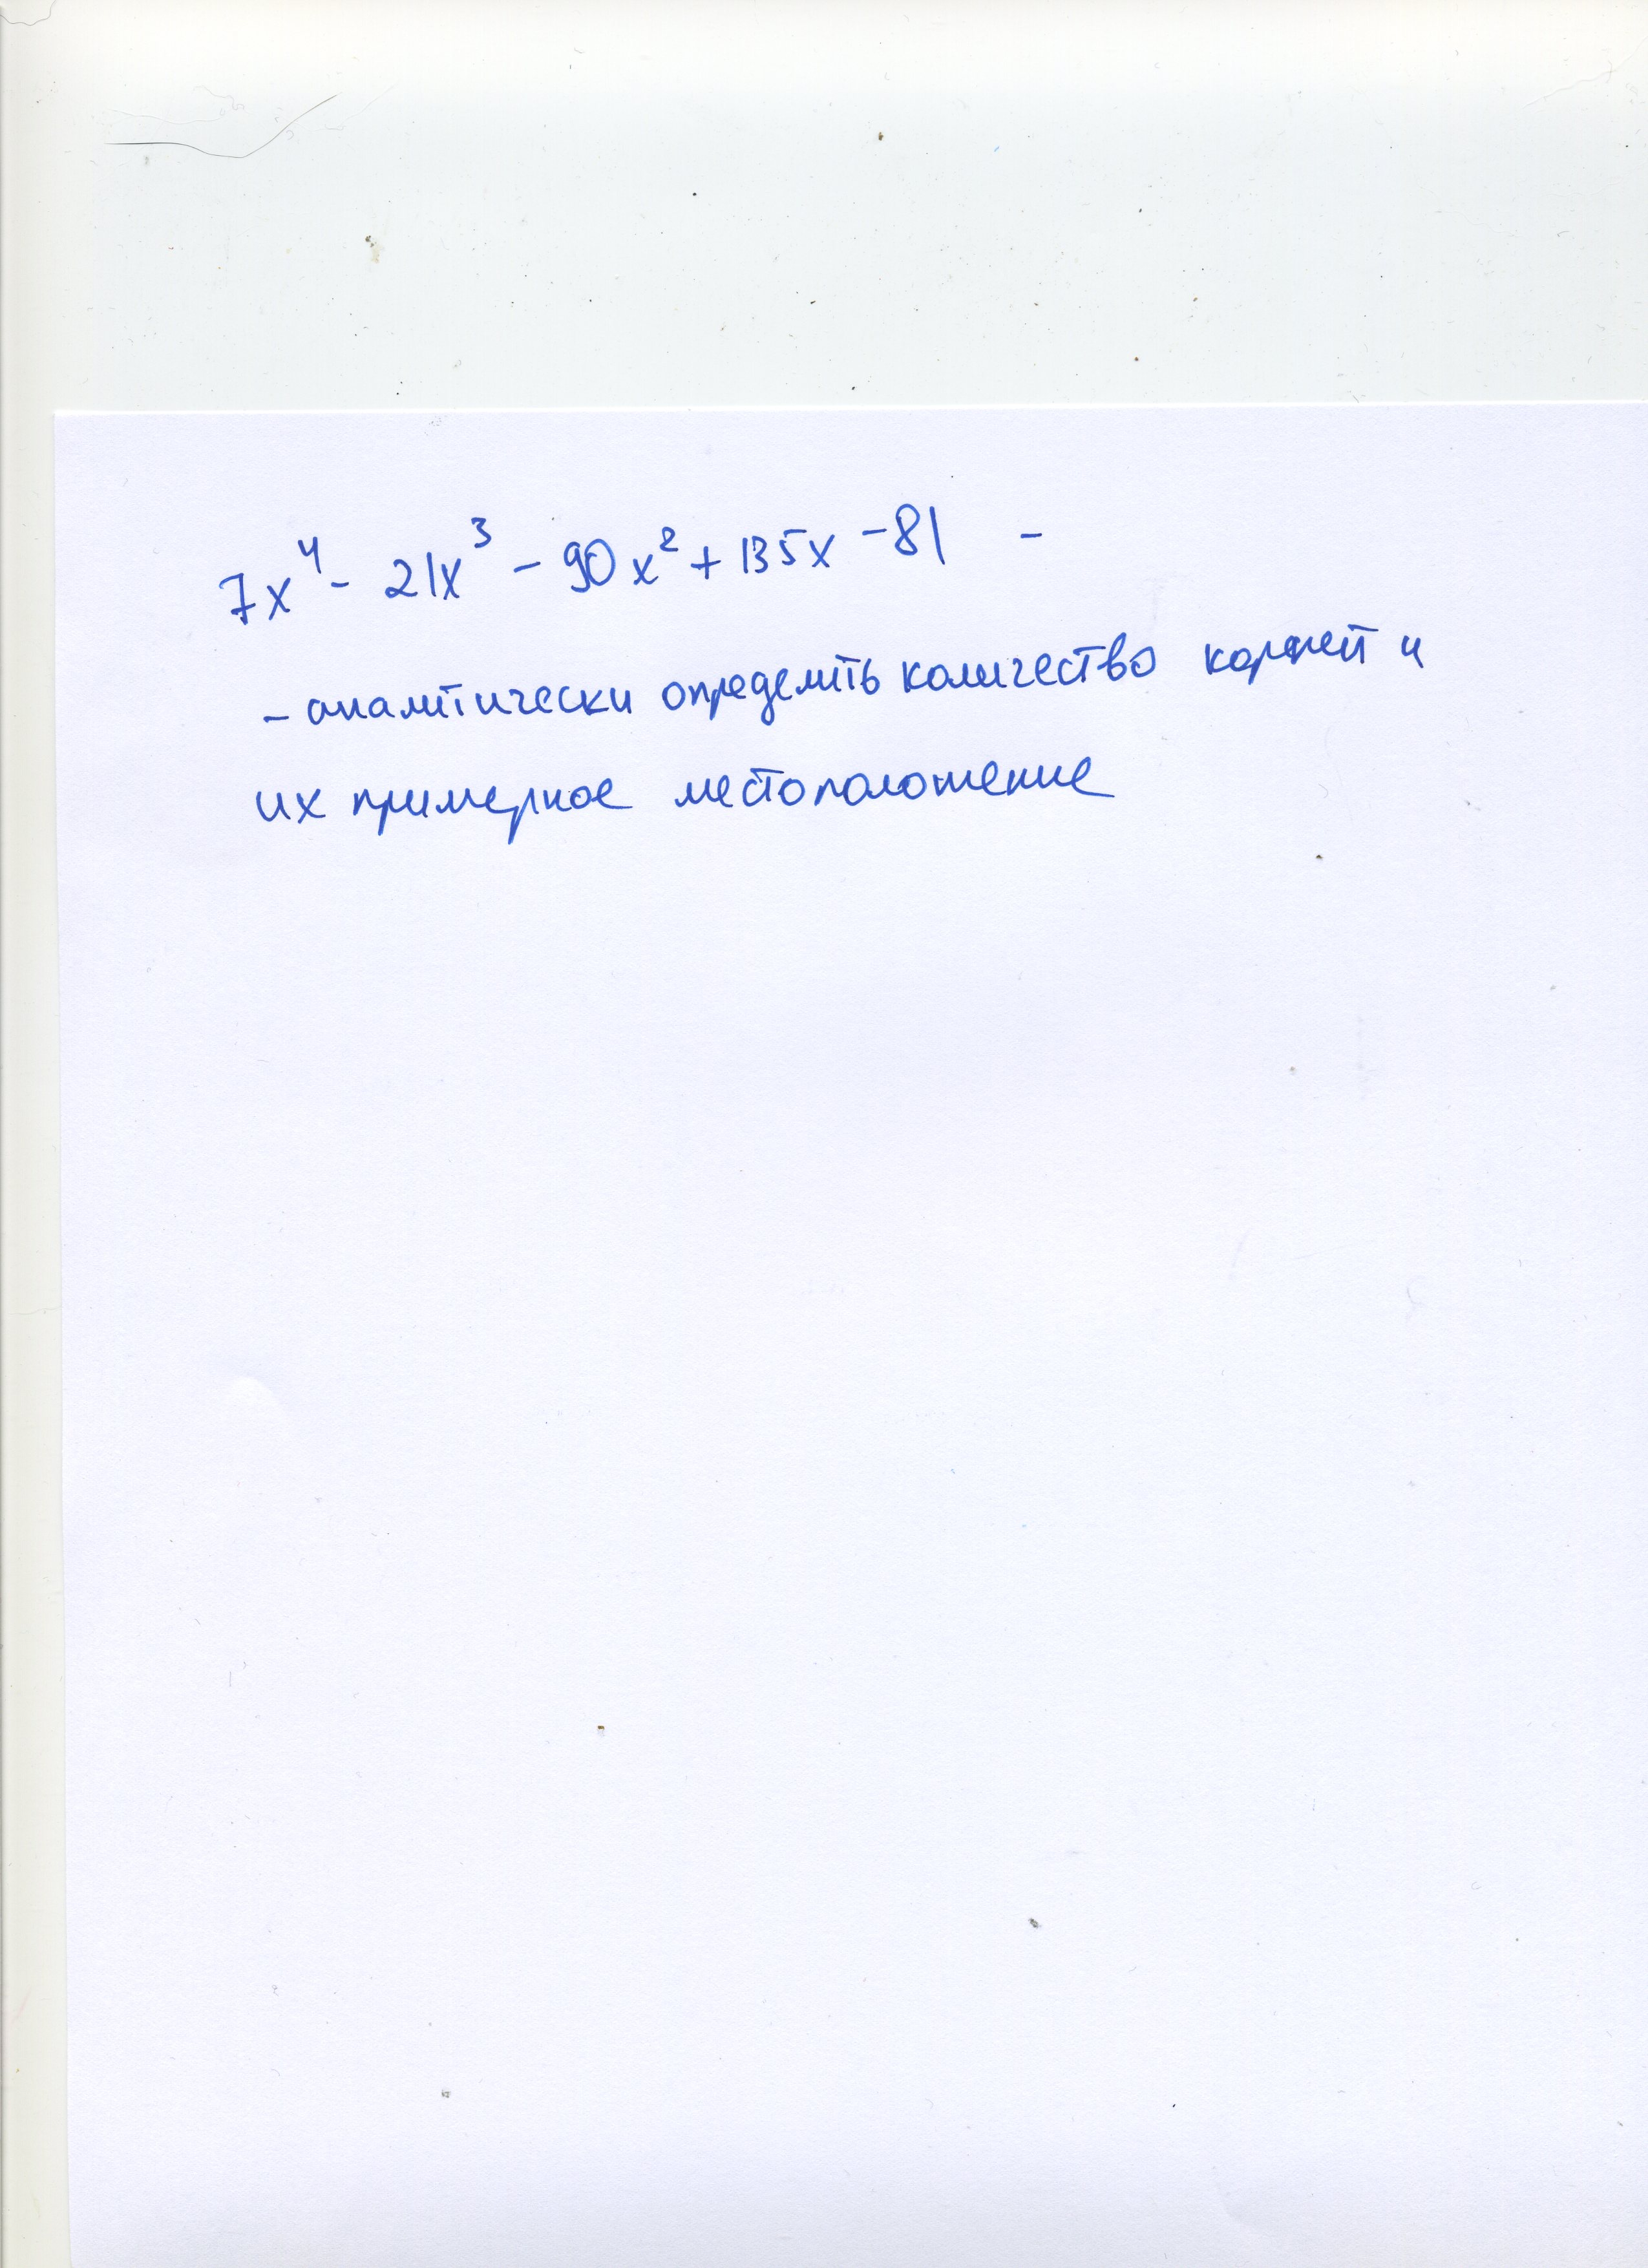 7x⁴ - 21x³ - 90x² + 135x - 81 -
- аналитически определить количество корней и
их примерное местоположение